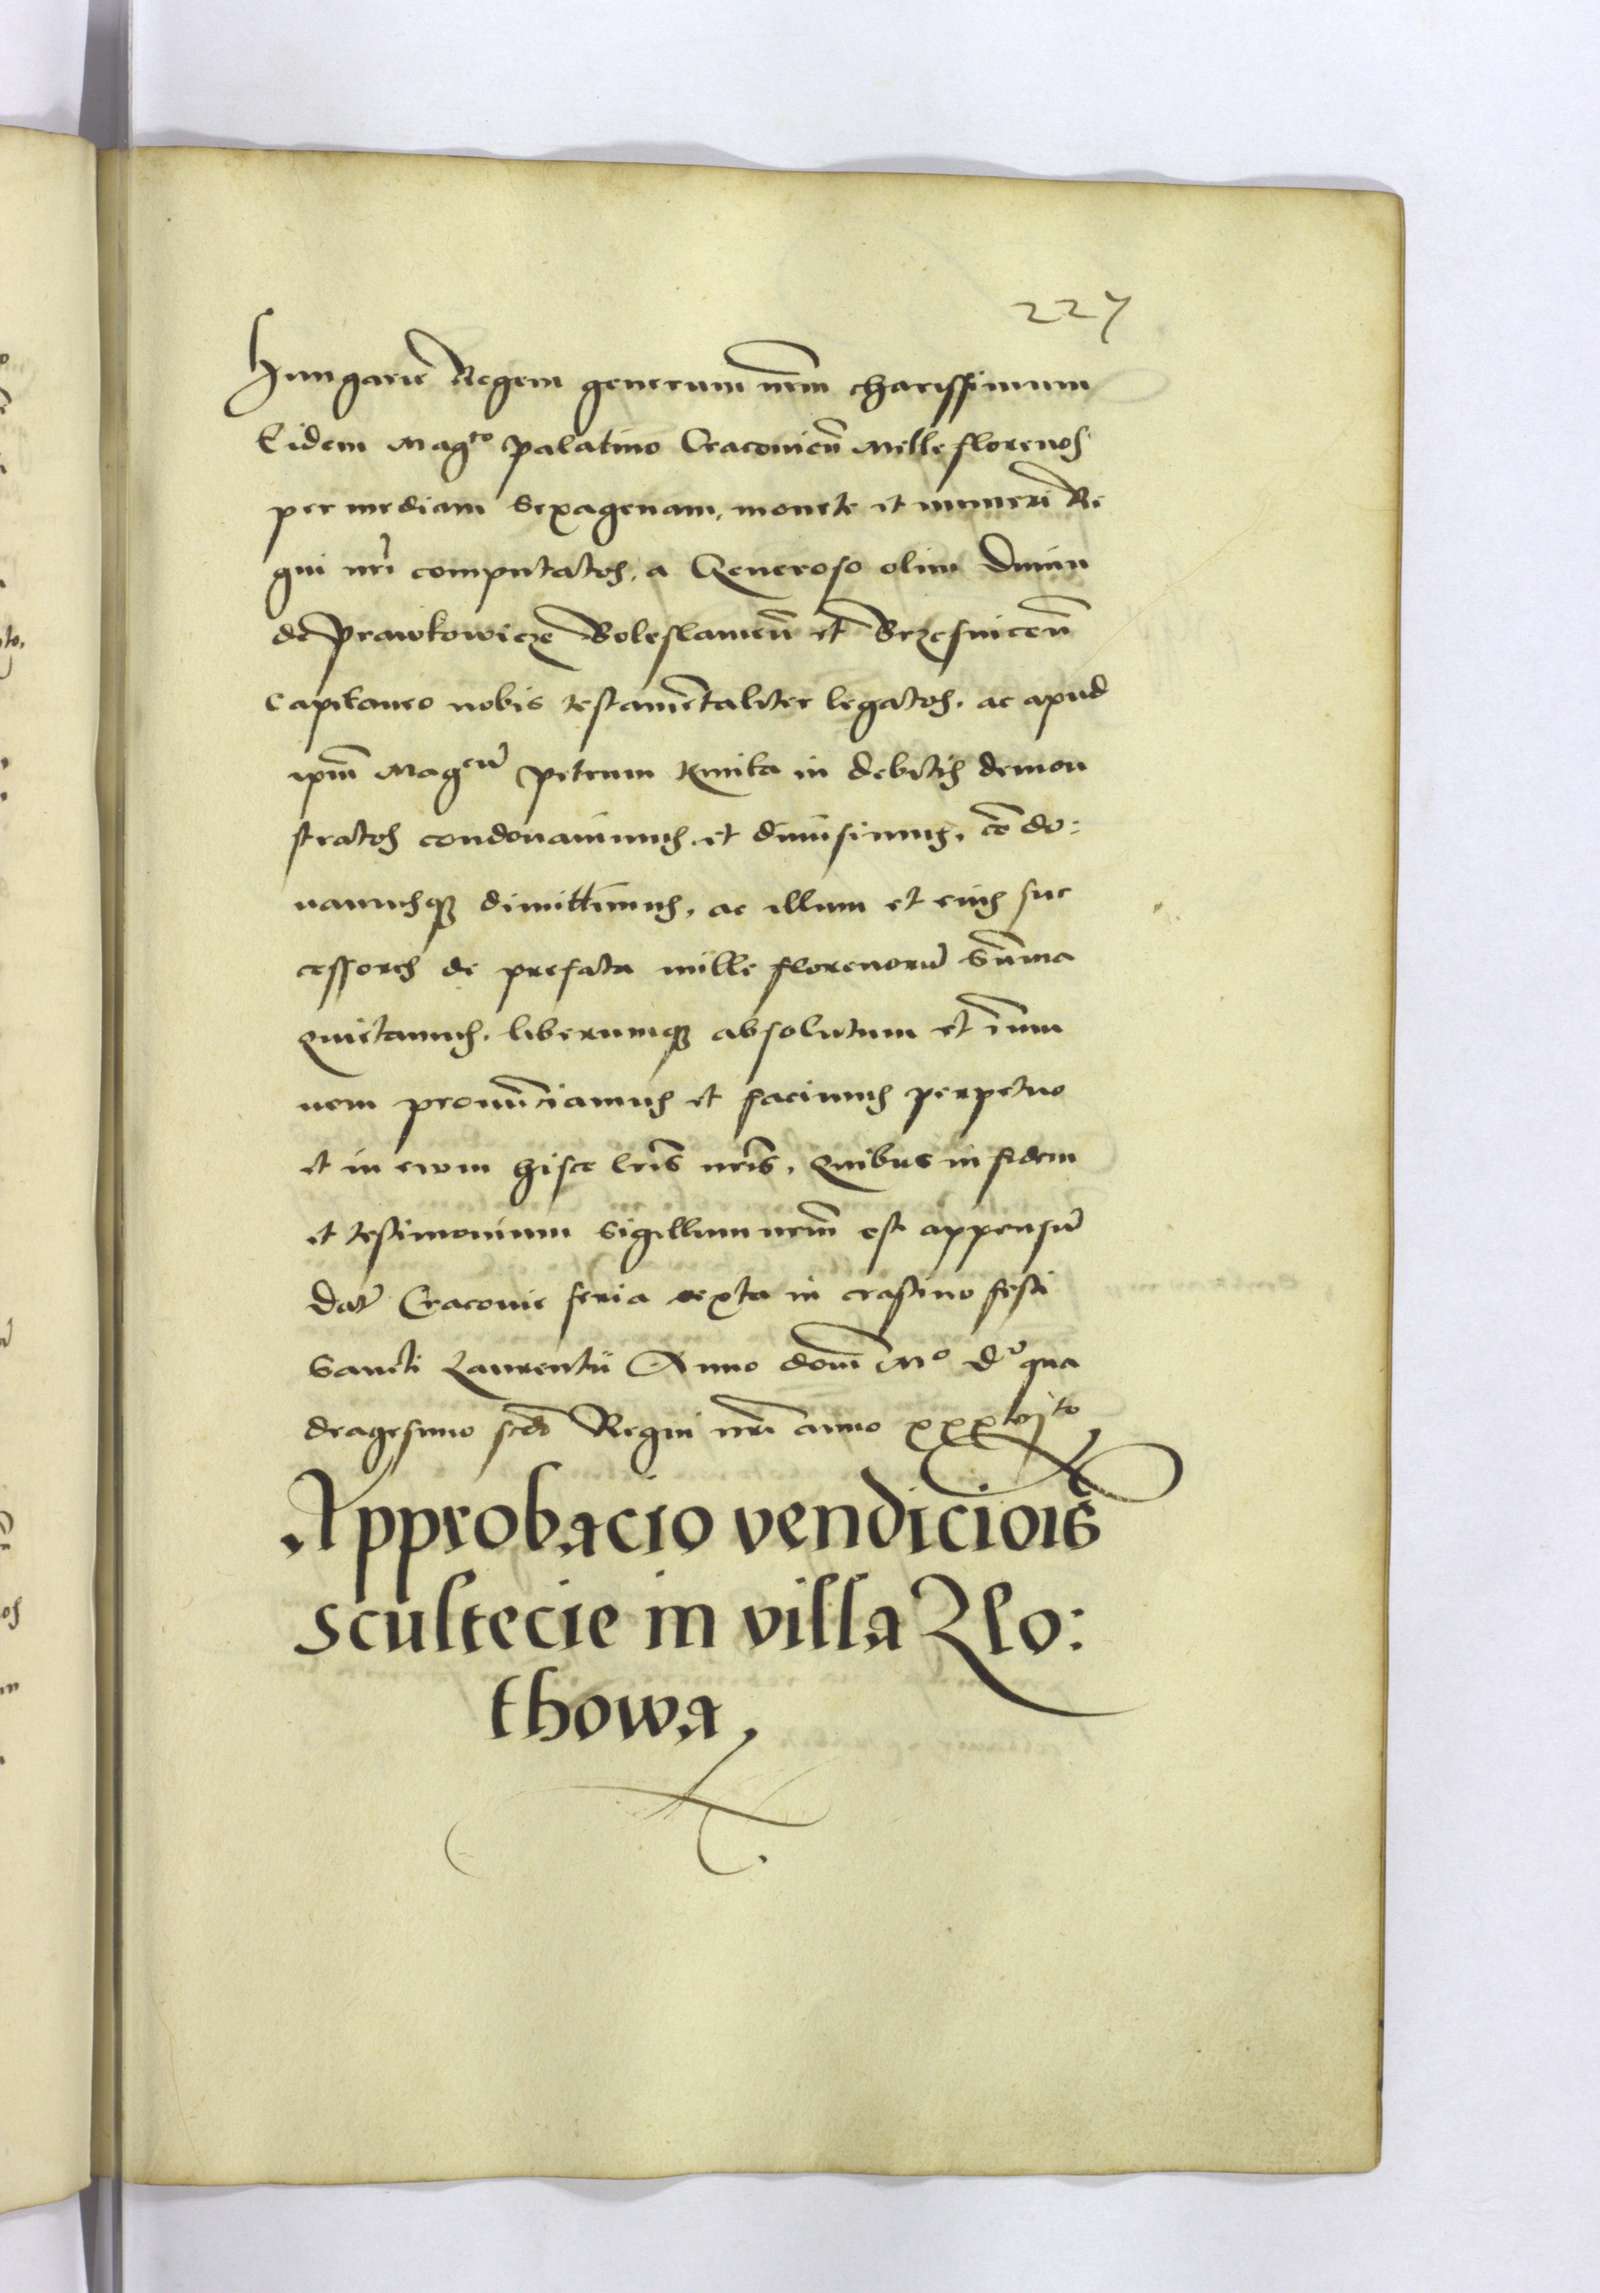 227
Hungarie Regem generum nrm charissimum
Eidem Mag^to palatino Cracovien Mille florenos
per mediam sexagenam, monete et numeri Re
gni nri computatos, a Generoso olim
de Prawkowicze Boleslawien et Brzesnicen
Capitaneo nobis testamentaliter legatos, ac apud
ipm Mag^cu Petrum Kmita in debitis demon
stratos condonavimus et dimisimus, con do:
namusq dimittimus, ac illum et eius suc
cessores de prefata mille florenoru summa
quietamus, liberumq absolutum et immu
nem pronunciamus et facimus perpetuo
et in evum hisce lris nris, Quibus in fidem
et testimonium sigillum nrm est appensu
Dat Cracovie feria sexta in crastino festi
Sancti Laurentii Anno dom M^o D^o qua
dragesimo scdo Regni nri anno xxxvj^to
Approbacio vendiciois
scultecie in villa Zlo:
thowa,